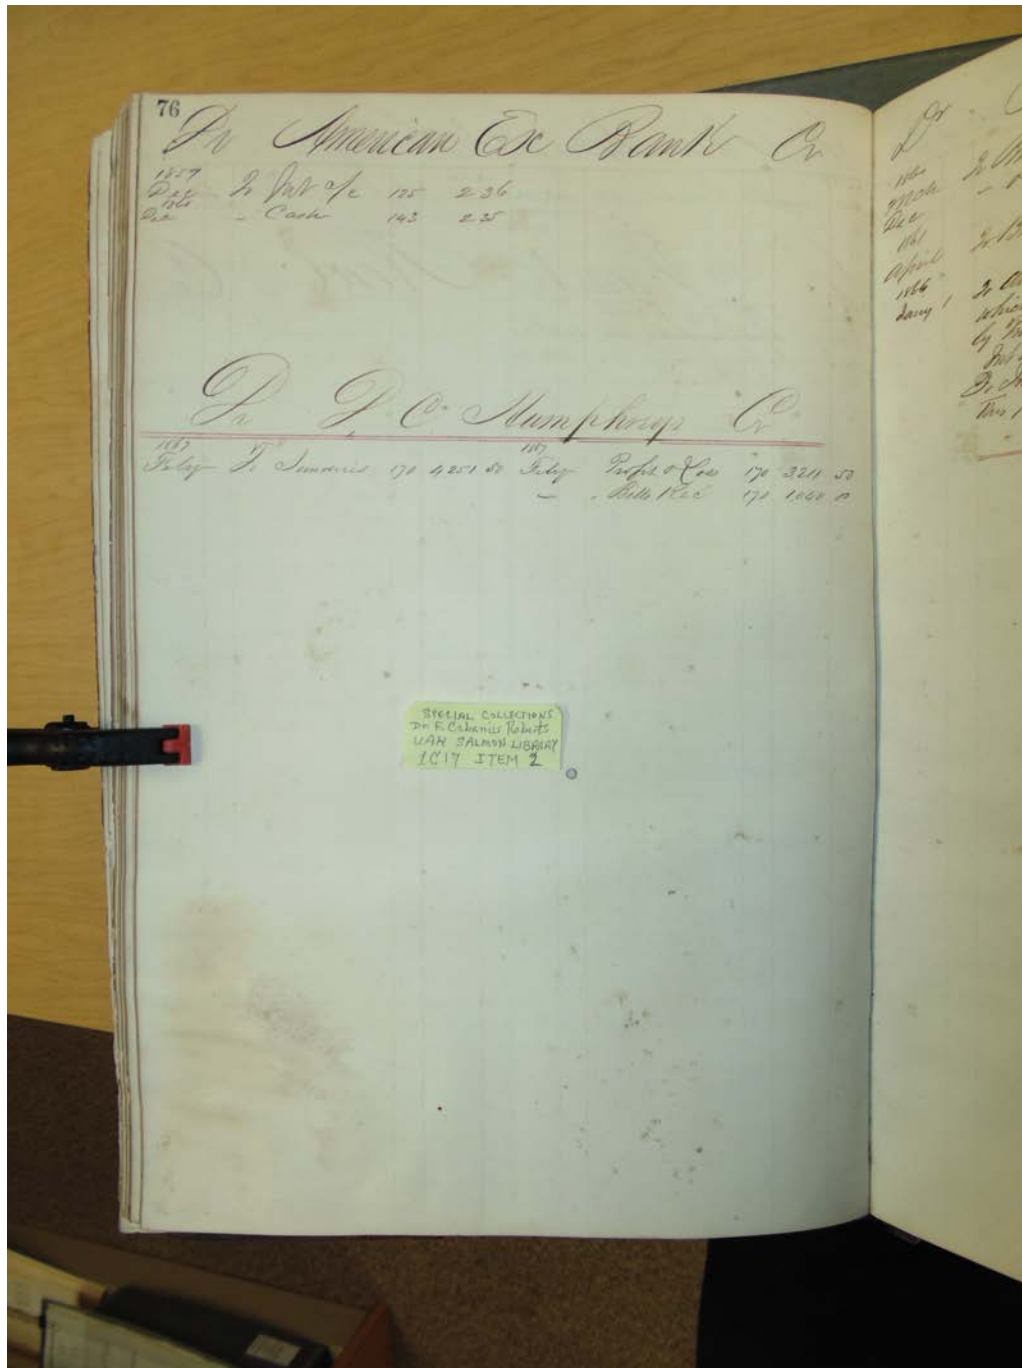 76
Dr American Exc Bank Cr
1857
Dec To Int a/c 125 2 36
1860
Dec " Cash 143 2 35
Dr D. C. Humphreys Cr
1867 1867
Feby To Sundries 170 4251 50 Feby Profit & Loss 170 3211 50
" " Bills Rec 170 1040 00
SPECIAL COLLECTIONS
Dr. F. Cabaniss Roberts
UAH SALMON LIBRARY
1C17 ITEM 2
Dr
1860
Dec
1861
April
1866
Jany 1
which
by
This